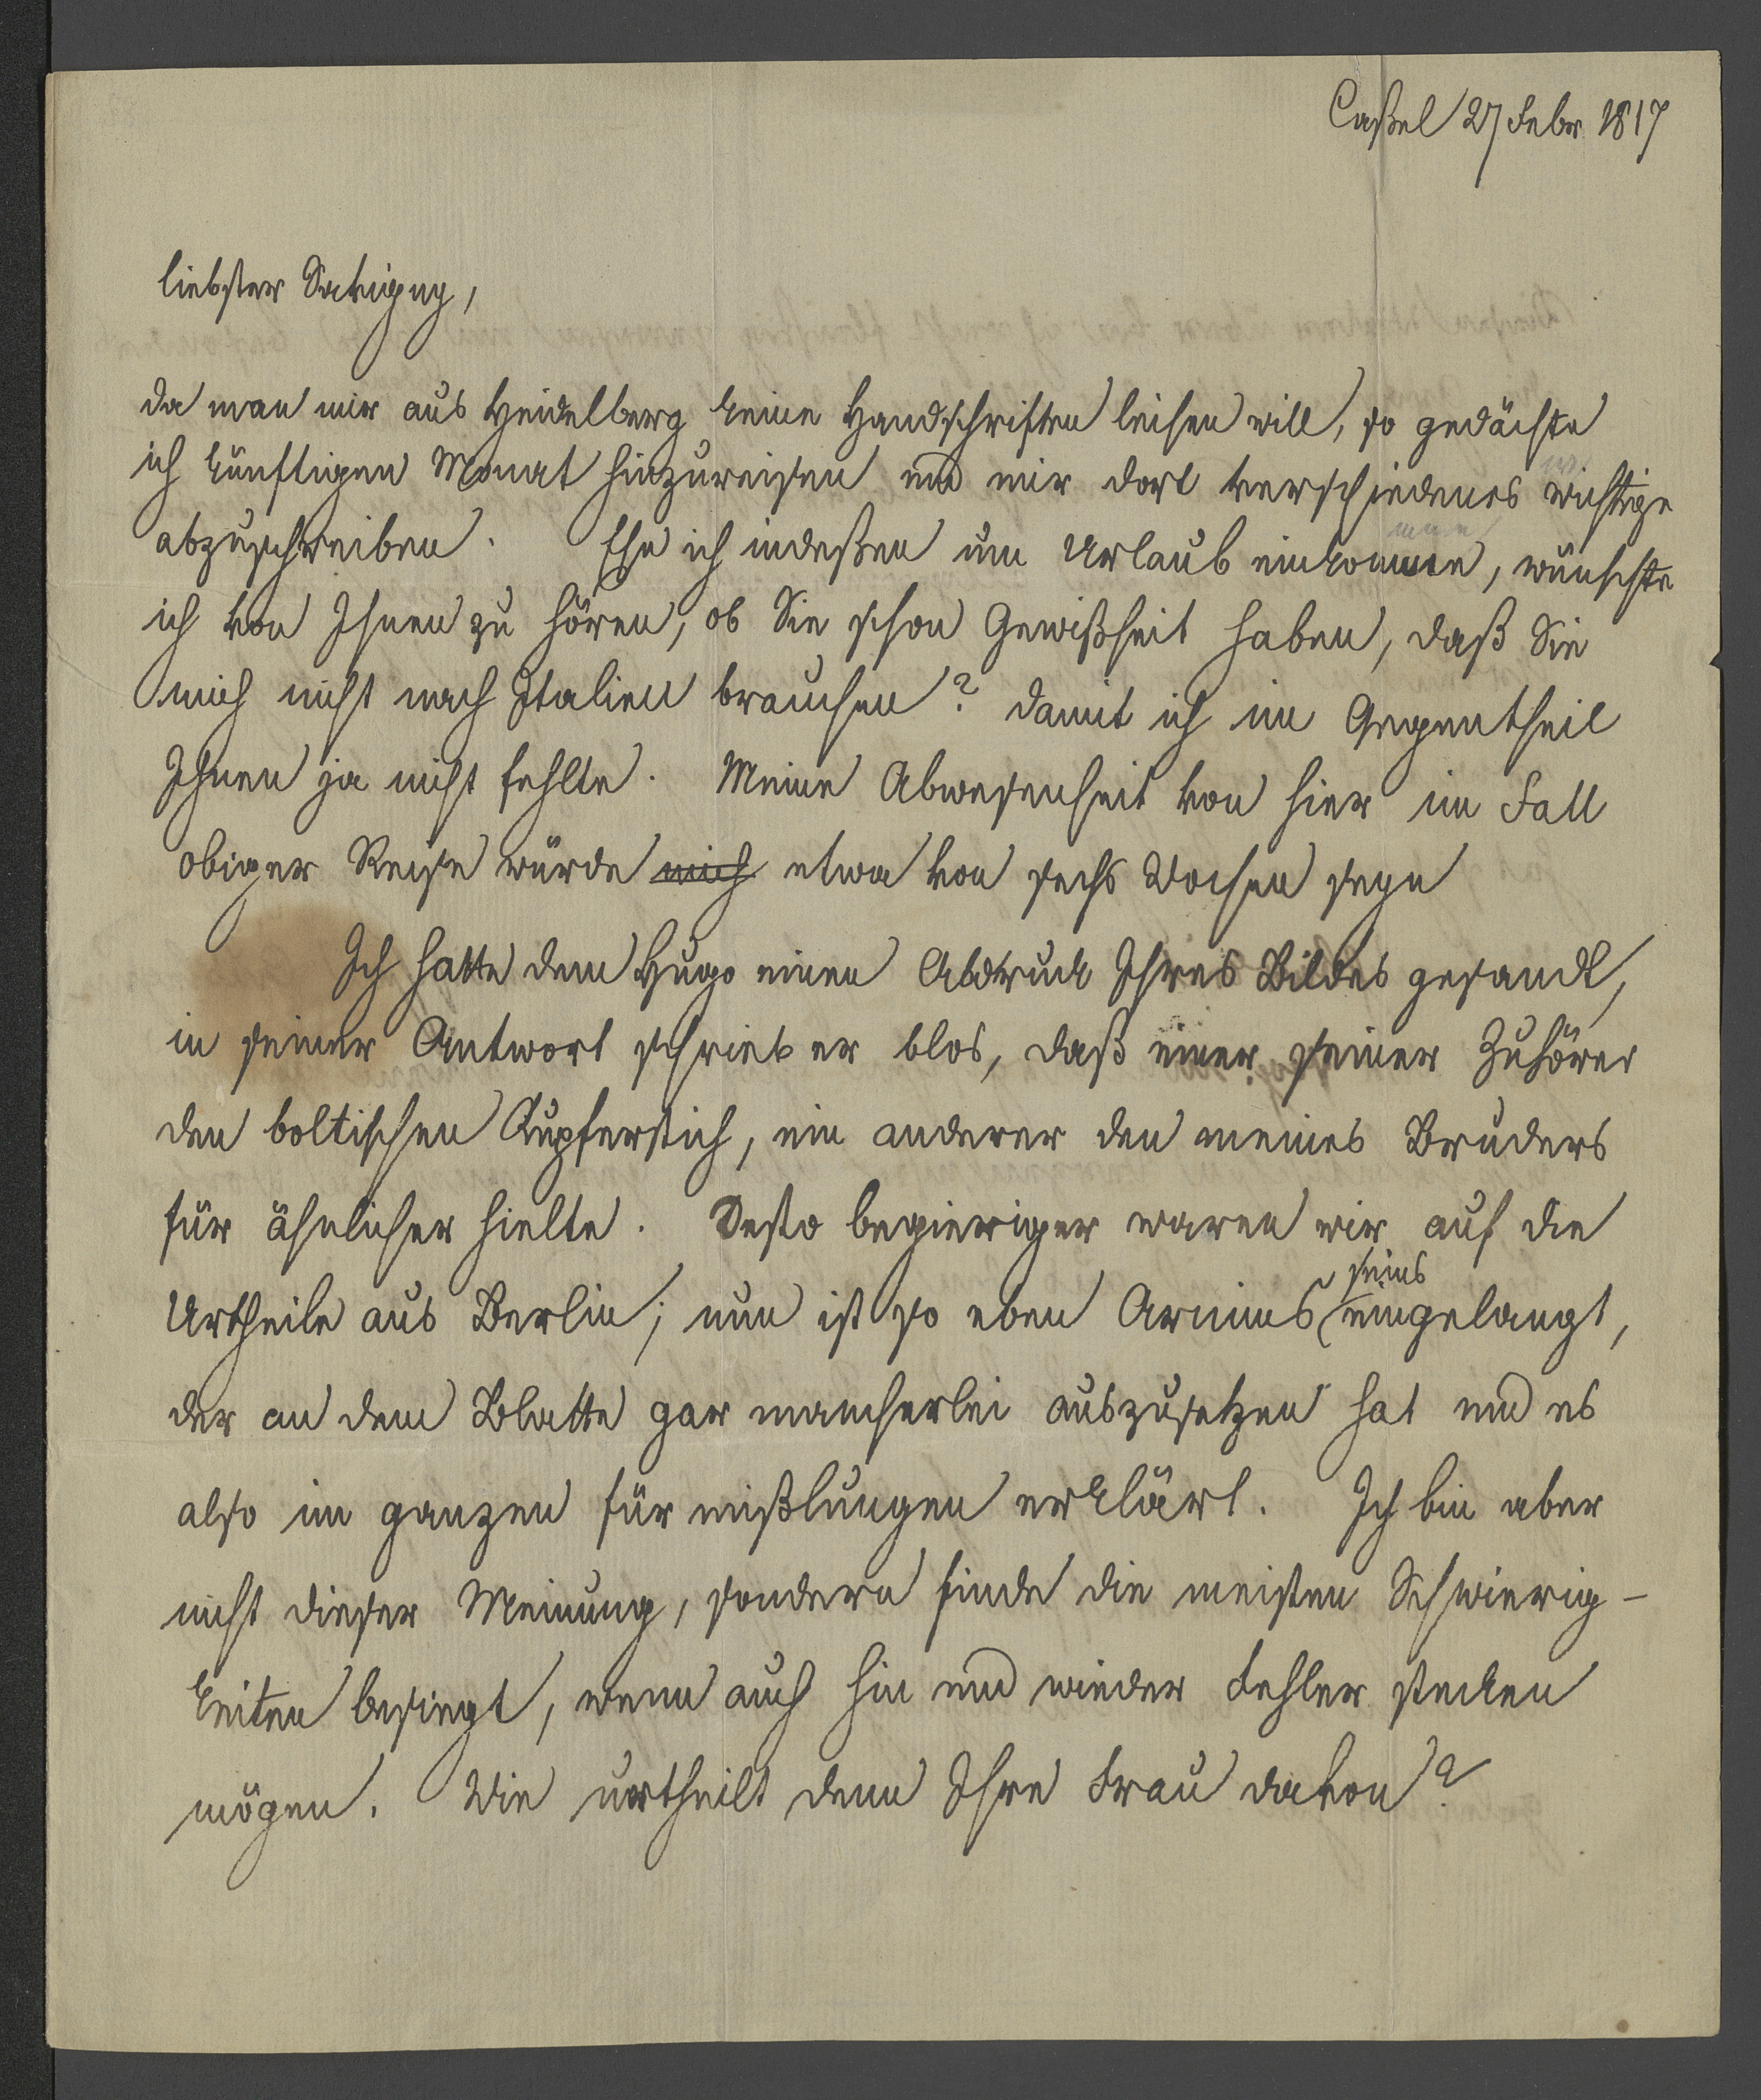 Caßel 27 Febr 1817
liebster Savigny,
da man mir aus Heidelberg keine Handschriften leihen will, so gedächte
ich künftigen Monat hinzureisen und mir dort verschiedenes wichtige
abzuschreiben. Ehe ich indeßen um Urlaub einkomme, wünschte
ich von Ihnen zu hören, ob Sie schon Gewißheit haben, daß Sie
mich nicht nach Italien brauchen? damit ich im Gegentheil
Ihnen ja nicht fehlte. Meine Abwesenheit von hier im Fall
obiger Reise würde mich etwa von sechs Wochen seyn
Ich hatte dem Hugo einen Abdruck Ihres Bildes gesandt,
in seiner Antwort schrieb er blos, daß einer seiner Zuhörer
den boltischen Kupferstich, ein anderer den meines Bruders
für ähnlicher hielte. Desto begieriger waren wir auf die
seins
Urtheile aus Berlin; nun ist so eben Arnims eingelangt,
der an dem Blatte gar mancherlei auszusetzen hat und es
also im ganzen für mißlungen erklärt. Ich bin aber
nicht dieser Meinung, sondern finde die meisten Schwierig-
keiten besiegt, wenn auch hin und wieder Fehler stecken
mögen. Wie urtheilt denn Ihre Frau davon?